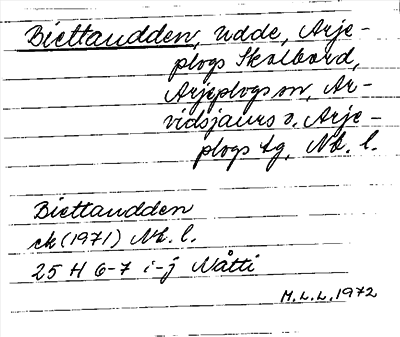 Biettaudden, udde, Arje-
plogs Skolbord,
Arjeplogs sn, Ar-
vidsjaurs o. Arje-
plogs tg, Nb. l.
Biettaudden
ek (1971) Nb. l.
25 H 6-7 i-j Nåtti
M.L.L. 1972